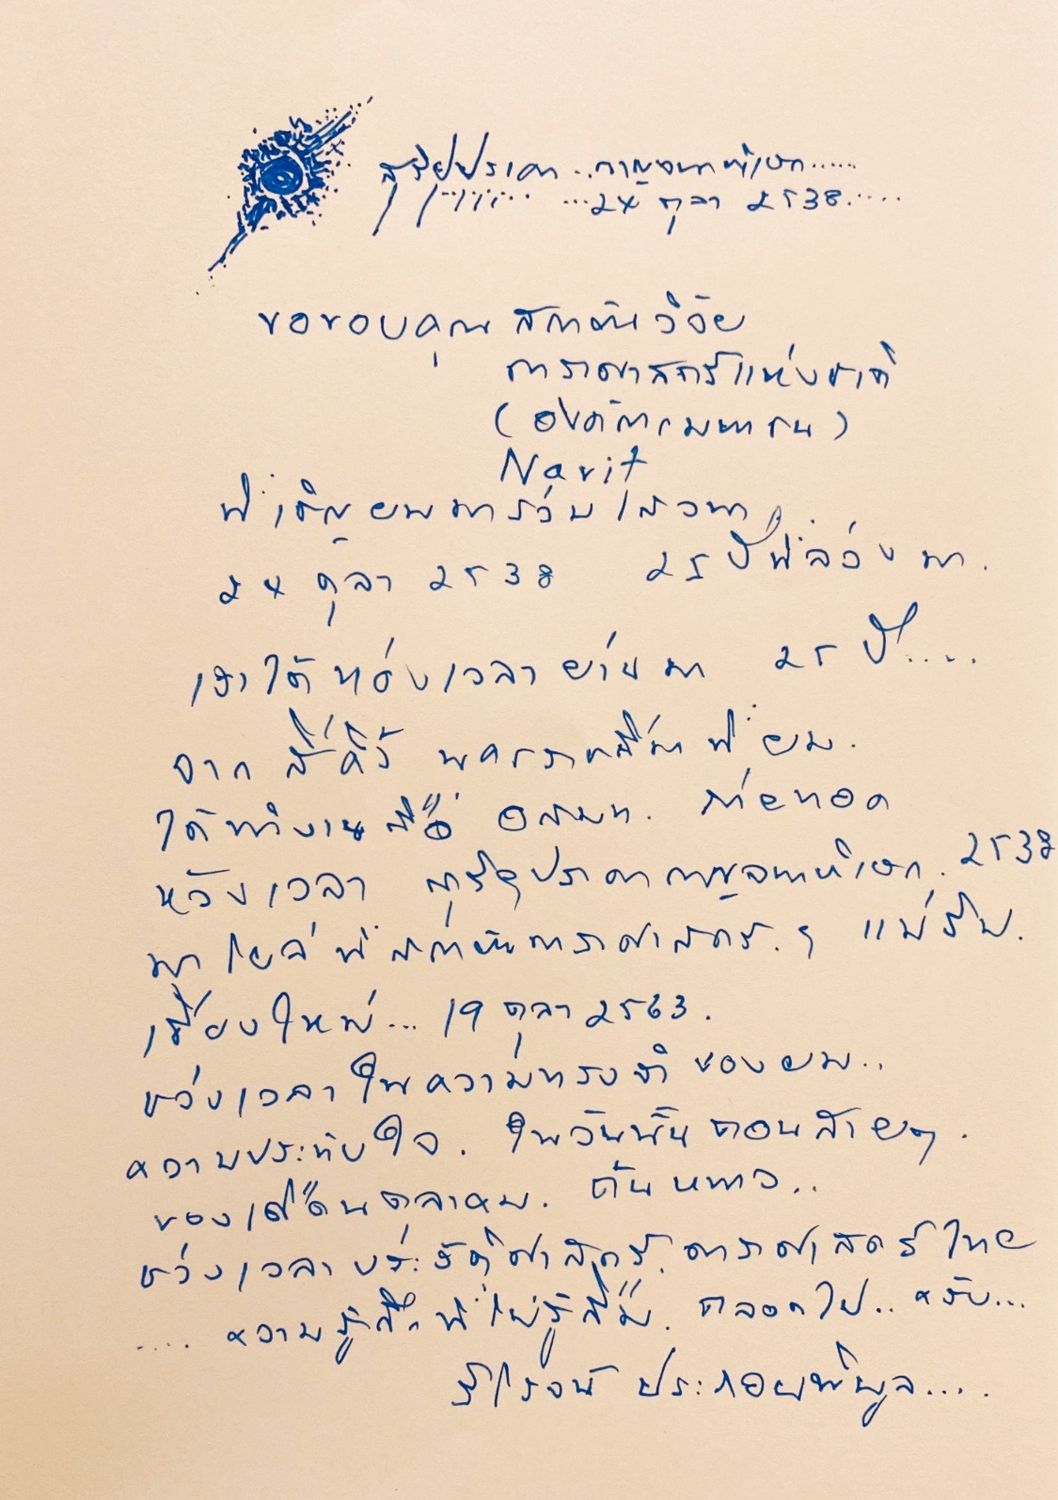 สุริยุปราคา...กาญจนาภิเษก......
...24 ตุลา 2538.....
ขอขอบคุณ สถาบันวิจัย
ดาราศาสตร์แห่งชาติ
(องค์การมหาชน)
Narit
ที่เชิญผมมาร่วมเสวนา
24 ตุลา 2538 25 ปีที่ล่วงมา.
เราได้ท่องเวลาผ่านมา 25 ปี.....
จาก สี่คิ้ว นครราชสีมา ที่ผม.
ได้ทำงานสื่อ อสมท. ถ่ายทอด
ห้วงเวลา สุริยุปราคากาญจนาภิเษก. 2538
มาไล่ที่ สถาบันดาราศาสตร์.ๆ แม่ริม.
เชียงใหม่... 19 ตุลา 2563.
ช่วงเวลาในความทรงจำของผม..
ความประทับใจ. ในวันนั้นตอนสายๆ.
ของเดือนตุลาคม. ต้นหนาว..
ช่วงเวลาประวัติศาสตร์.ดาราศาสตร์ไทย
.... ความรู้สึกที่ไม่รู้ลืม. ตลอดไป.. ครับ...
ประกอบพิบูล....